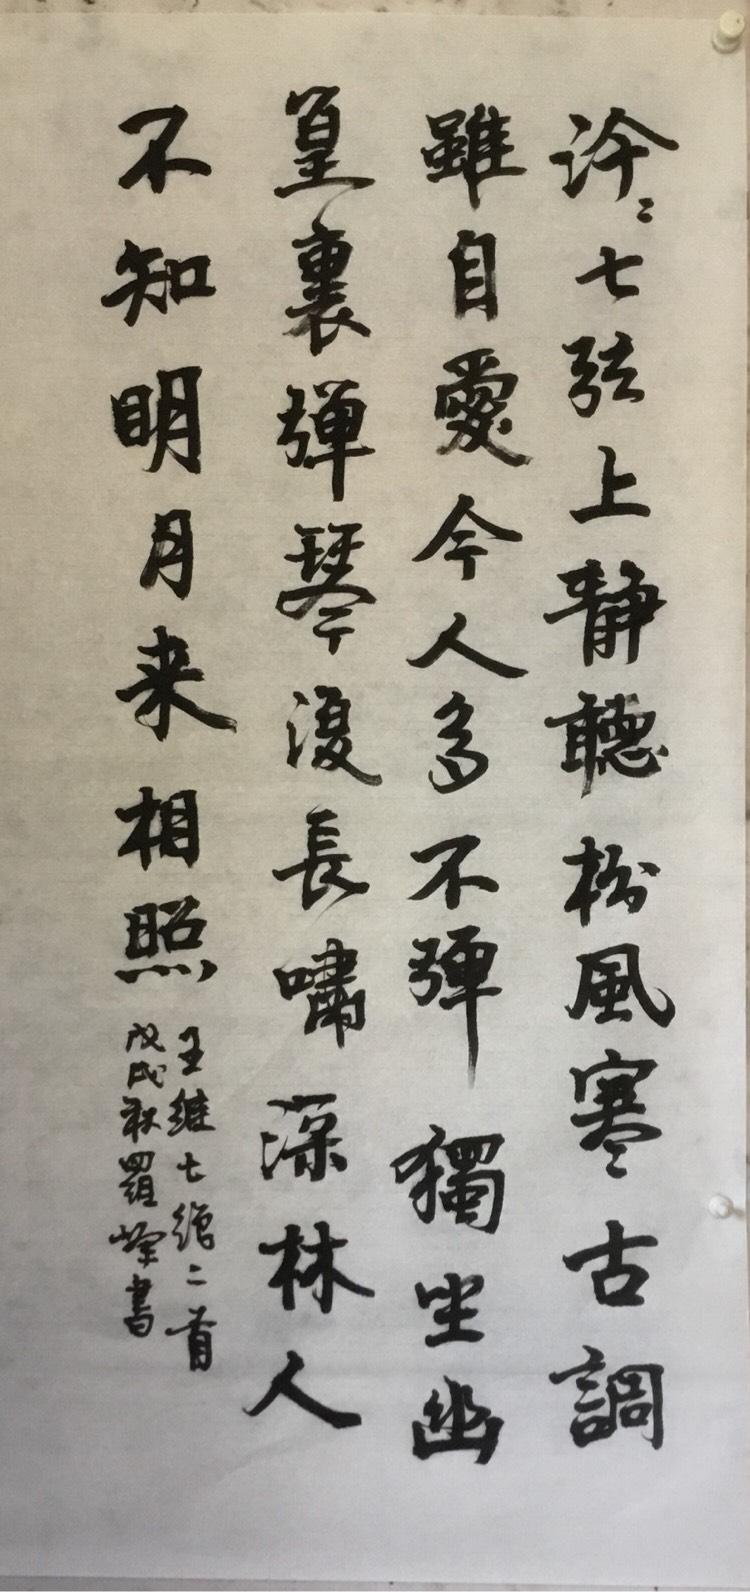 泠〻七弦上靜聽松風寒古調
雖自愛今人多不彈獨坐幽
篁裏彈琴復長嘯深林人
不知明月来相照
王維七絕二首
戊戌秋羅榮書